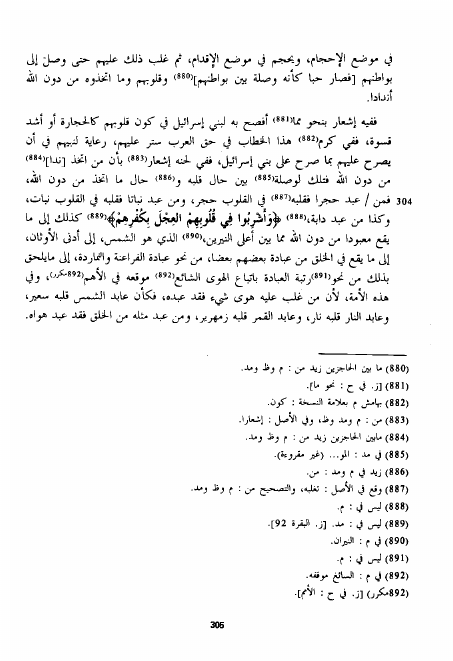 في موضع الإحجام، ويحجم في موضع الإقدام، ثم غلب ذلك عليهم حتى وصل إلى
بواطنهم [فصار حبا كأنه وصلة بين بواطنهم](880) وقلوبهم وما اتخذوه من دون الله
أندادا.
ففيه إشعار بنحو مما(881) أفصح به لبني إسرائيل في كون قلوبهم كالحجارة أو أشد
قسوة، ففي كرم(882) هذا الخطاب في حق العرب ستر عليهم، رعاية لنبيهم في أن
يصرح عليهم بما صرح على بني إسرائيل، ففي لحنه إشعار(883) بأن من اتخذ [ندا](884)
من دون الله فتلك لوصلة(885) بين حال قلبه و(886) حال ما اتخذ من دون الله،
304 فمن / عبد حجرا فقلبه(887) في القلوب حجر، ومن عبد نباتا فقلبه في القلوب نبات،
وكذا من عبد دابة،(888) ﴿وَأُشْرِبُوا فِي قُلُوبِهِمُ العِجْلَ بِكُفْرِهِمْ﴾(889) كذلك إلى ما
يقع معبودا من دون الله مما بين أعلى النيرين،(890) الذي هو الشمس، إلى أدنى الأوثان،
إلى ما يقع في الخلق من عبادة بعضهم بعضا، من نحو عبادة الفراعنة والنماردة، إلى مايلحق
بذلك من نحو(891) رتبة العبادة باتباع الهوى الشائع(892) موقعه في الأهم(892مكرر)، وفي
هذه الأمة، لأن من غلب عليه هوى شيء فقد عبده، فكأن عابد الشمس قلبه سعير،
وعابد النار قلبه نار، وعابد القمر قلبه زمهرير، ومن عبد مثله من الخلق فقد عبد هواه.
(880) ما بين الحاجزين زيد من : م وظ ومد.
(881) [ز. في ح : نحو ما].
(882) بهامش م بعلامة النسخة : كون.
(883) من : م ومد وظ، وفي الأصل : إشعارا.
(884) مابين الحاجزين زيد من : م وظ ومد.
(885) في مد : المو... (غير مقروءة).
(886) زيد في م ومد : من.
(887) وقع في الأصل : تغلبه، والتصحيح من : م وظ ومد.
(888) ليس في : م.
(889) ليس في : مد. [ز. البقرة 92].
(890) في م : النيران.
(891) ليس في : م.
(892) في م : السائغ موقفه.
(892مكرر) [ز. في ح : الأمم].
306